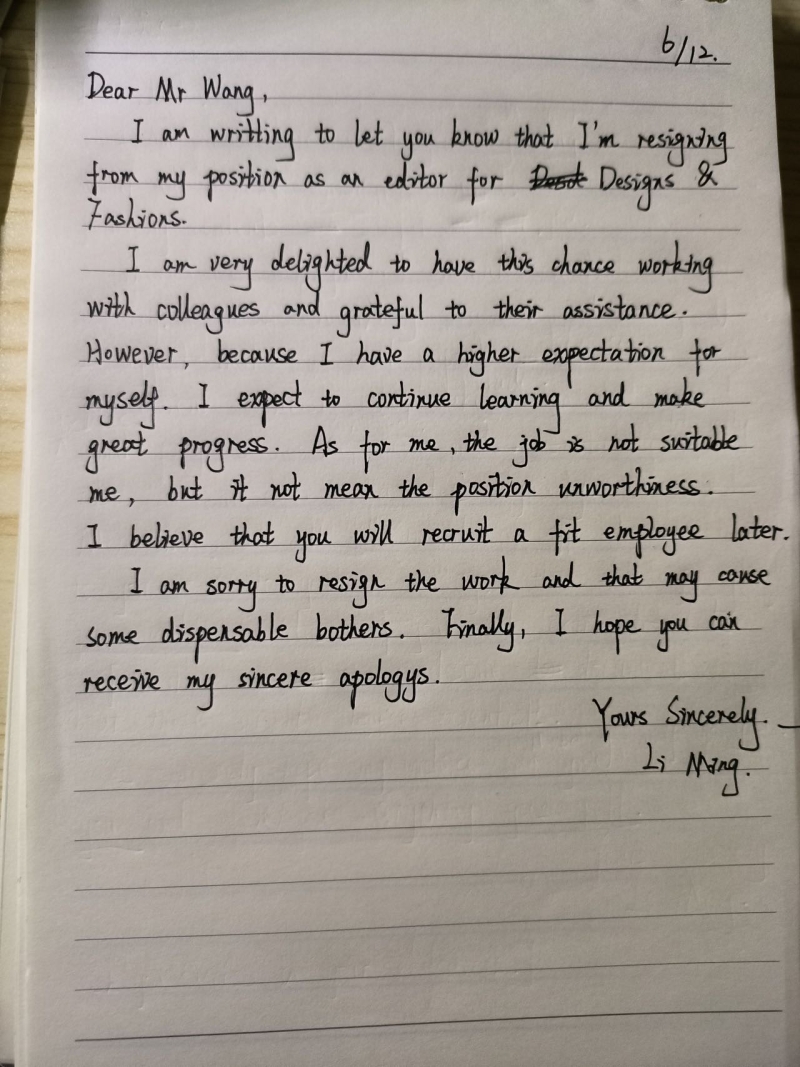 6/12.
Dear Mr Wang,
I am writting to let you know that I'm resigning
from my position as an editor for Designs &
Fashions.
I am very delighted to have this chance working
with colleagues and grateful to their assistance.
However, because I have a higher expectation for
myself. I expect to continue learning and make
great progress. As for me, the job is not suitable
me, but it not mean the position unworthiness.
I believe that you will recruit a fit employee later.
I am sorry to resign the work and that may cause
some dispensable bothers. Finally, I hope you can
receive my sincere apologys.
Yours Sincerely.
Li Ming.